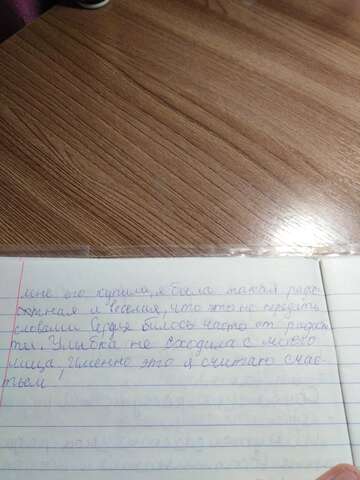 мне его купила, я была такая радо-
стная и весёлая, что это не передать
словами Сердце билось часто от радос-
ти. Улыбка не сходила с моего
лица, Именно это я считаю счас-
тьем